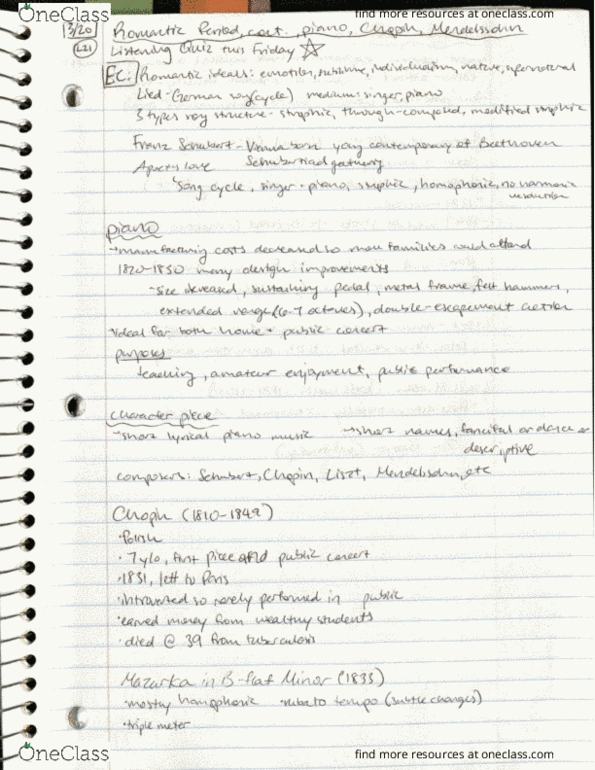 OneClass find more resources at oneclass.com
3/20 Romantic Period, cont., piano, Chopin, Mendelssohn
L21 Listening Quiz this Friday
EC: Romantic ideals: emotion, sublime, individualism, nature, supernatural
Lied - German song (cycle) medium: singer, piano
3 types song structure - strophic, through-composed, modified strophic
Franz Schubert - Vienna born young contemporary of Beethoven
A poet's love Schubertiad gathering
song cycle, singer + piano, strophic, homophonic, no harmonic
resolution
piano
manufacturing costs decreased so more families could afford
1820-1830 many design improvements
- size increased, sustaining pedal, metal frame, felt hammers,
extended range (6-7 octaves), double-escapement action
ideal for both home + public concert
purposes
teaching, amateur enjoyment, public performance
character piece
short lyrical piano music short names, fanciful or dance or
descriptive
composers: Schubert, Chopin, Liszt, Mendelssohn, etc
Chopin (1810-1849)
• Polish
• 7 y/o, first piece and public concert
• 1831, left to Paris
• introverted so rarely performed in public
• earned money from wealthy students
• died @ 39 from tuberculosis
Mazurka in B-flat Minor (1833)
• mostly homophonic rubato tempo (subtle changes)
• triple meter
OneClass find more resources at oneclass.com